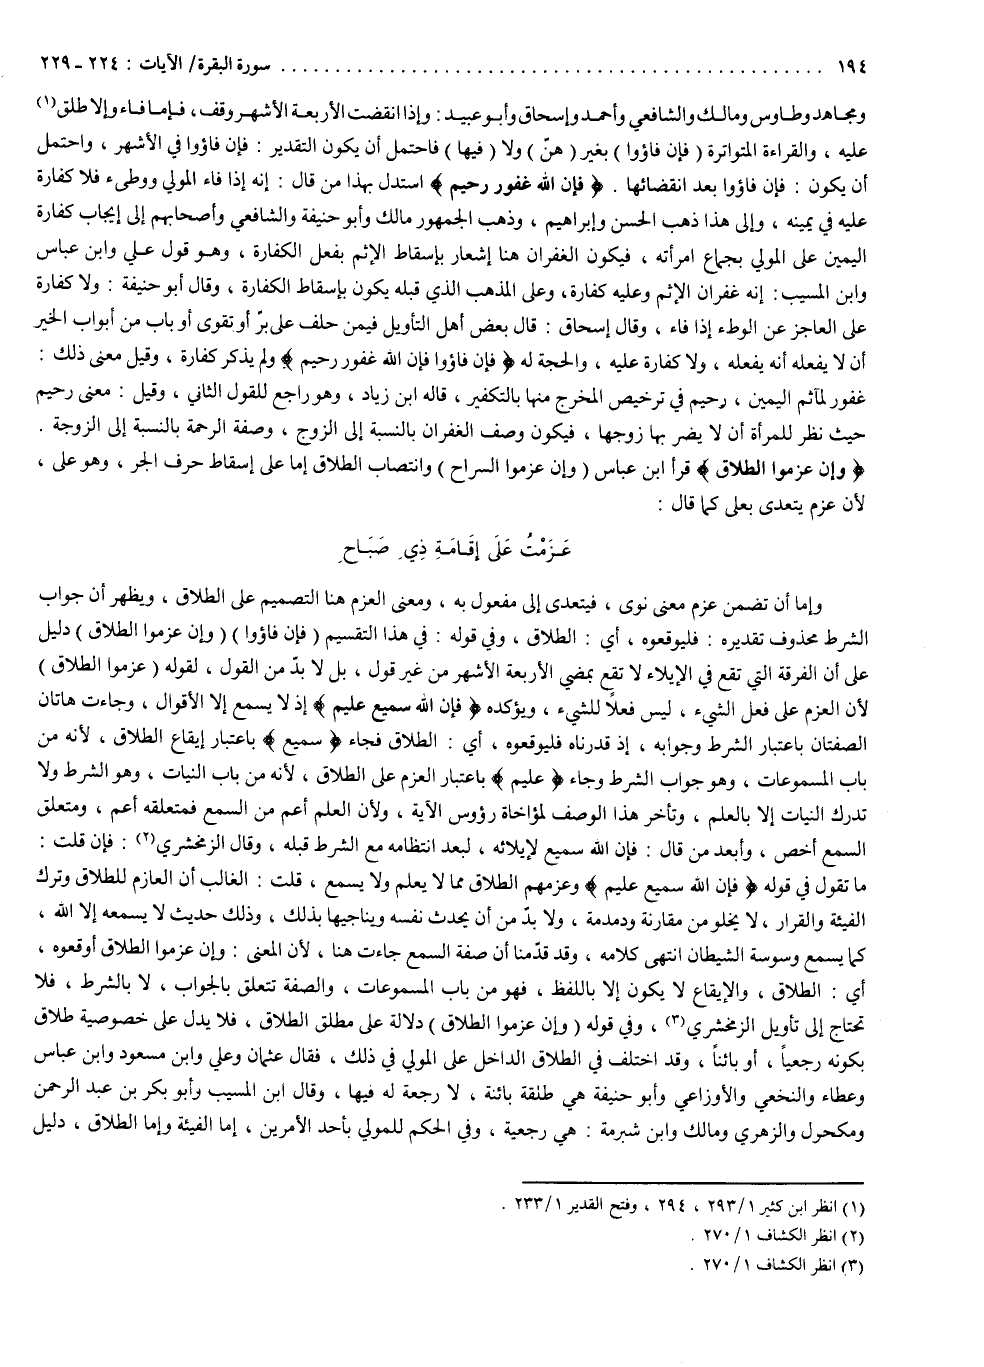 ١٩٤ ........................................................ سورة البقرة/ الآيات : ٢٢٤ ـ ٢٢٩
ومجاهد وطاوس ومالك والشافعي وأحمد وإسحاق وأبو عبيد : وإذا انقضت الأربعة الأشهر وقف ، فإما فاء وإلا طلق(١)
عليه ، والقراءة المتواترة ( فإن فاؤوا ) بغير ( هنّ ) ولا ( فيها ) فاحتمل أن يكون التقدير : فإن فاؤوا في الأشهر ، واحتمل
أن يكون : فإن فاؤوا بعد انقضائها . ﴿ فإن الله غفور رحيم ﴾ استدل بهذا من قال : إنه إذا فاء المولي ووطىء فلا كفارة
عليه في يمينه ، وإلى هذا ذهب الحسن وإبراهيم ، وذهب الجمهور مالك وأبو حنيفة والشافعي وأصحابهم إلى إيجاب كفارة
اليمين على المولي بجماع امرأته ، فيكون الغفران هنا إشعار بإسقاط الإثم بفعل الكفارة ، وهو قول علي وابن عباس
وابن المسيب : إنه غفران الإثم وعليه كفارة ، وعلى المذهب الذي قبله يكون بإسقاط الكفارة ، وقال أبو حنيفة : ولا كفارة
على العاجز عن الوطء إذا فاء ، وقال إسحاق : قال بعض أهل التأويل فيمن حلف على برّ أو تقوى أو باب من أبواب الخير
أن لا يفعله أنه يفعله ، ولا كفارة عليه ، والحجة له ﴿ فإن فاؤوا فإن الله غفور رحيم ﴾ ولم يذكر كفارة ، وقيل معنى ذلك :
غفور لمآثم اليمين ، رحيم في ترخيص المخرج منها بالتكفير ، قاله ابن زياد ، وهو راجع للقول الثاني ، وقيل : معنى رحيم
حيث نظر للمرأة أن لا يضر بها زوجها ، فيكون وصف الغفران بالنسبة إلى الزوج ، وصفة الرحمة بالنسبة إلى الزوجة .
﴿ وإن عزموا الطلاق ﴾ قرأ ابن عباس ( وإن عزموا السراح ) وانتصاب الطلاق إما على إسقاط حرف الجر ، وهو على ،
لأن عزم يتعدى بعلى كما قال :
عَـزَمْتُ عَلَى إقَـامَـةِ ذِي صَبَـاحٍ
وإما أن تضمن عزم معنى نوى ، فيتعدى إلى مفعول به ، ومعنى العزم هنا التصميم على الطلاق ، ويظهر أن جواب
الشرط محذوف تقديره : فليوقعوه ، أي : الطلاق ، وفي قوله : في هذا التقسيم ( فإن فاؤوا ) ( وإن عزموا الطلاق ) دليل
على أن الفرقة التي تقع في الإيلاء لا تقع بمضي الأربعة الأشهر من غير قول ، بل لا بدّ من القول ، لقوله ( عزموا الطلاق )
لأن العزم على فعل الشيء ، ليس فعلاً للشيء ، ويؤكده ﴿ فإن الله سميع عليم ﴾ إذ لا يسمع إلا الأقوال ، وجاءت هاتان
الصفتان باعتبار الشرط وجوابه ، إذ قدرناه فليوقعوه ، أي : الطلاق فجاء ﴿ سميع ﴾ باعتبار إيقاع الطلاق ، لأنه من
باب المسموعات ، وهو جواب الشرط وجاء ﴿ عليم ﴾ باعتبار العزم على الطلاق ، لأنه من باب النيات ، وهو الشرط ولا
تدرك النيات إلا بالعلم ، وتأخر هذا الوصف لمؤاخاة رؤوس الآية ، ولأن العلم أعم من السمع فمتعلقه أعم ، ومتعلق
السمع أخص ، وأبعد من قال : فإن الله سميع لإيلائه ، لبعد انتظامه مع الشرط قبله ، وقال الزمخشري(٢) : فإن قلت :
ما تقول في قوله ﴿ فإن الله سميع عليم ﴾ وعزمهم الطلاق مما لا يعلم ولا يسمع ، قلت : الغالب أن العازم للطلاق وترك
الفيئة والقرار ، لا يخلو من مقارنة ودمدمة ، ولا بدّ من أن يحدث نفسه ويناجيها بذلك ، وذلك حديث لا يسمعه إلا الله ،
كما يسمع وسوسة الشيطان انتهى كلامه ، وقد قدّمنا أن صفة السمع جاءت هنا ، لأن المعنى : وإن عزموا الطلاق أوقعوه ،
أي : الطلاق ، والإيقاع لا يكون إلا باللفظ ، فهو من باب المسموعات ، والصفة تتعلق بالجواب ، لا بالشرط ، فلا
تحتاج إلى تأويل الزمخشري(٣) ، وفي قوله ( وإن عزموا الطلاق ) دلالة على مطلق الطلاق ، فلا يدل على خصوصية طلاق
بكونه رجعياً ، أو بائناً ، وقد اختلف في الطلاق الداخل على المولي في ذلك ، فقال عثمان وعلي وابن مسعود وابن عباس
وعطاء والنخعي والأوزاعي وأبو حنيفة هي طلقة بائنة ، لا رجعة له فيها ، وقال ابن المسيب وأبو بكر بن عبد الرحمن
ومكحول والزهري ومالك وابن شبرمة : هي رجعية ، وفي الحكم للمولي بأحد الأمرين ، إما الفيئة وإما الطلاق ، دليل
(١) انظر ابن كثير ٢٩٣/١ ، ٢٩٤ ، وفتح القدير ٢٣٣/١ .
(٢) انظر الكشاف ٢٧٠/١ .
(٣) انظر الكشاف ٢٧٠/١ .